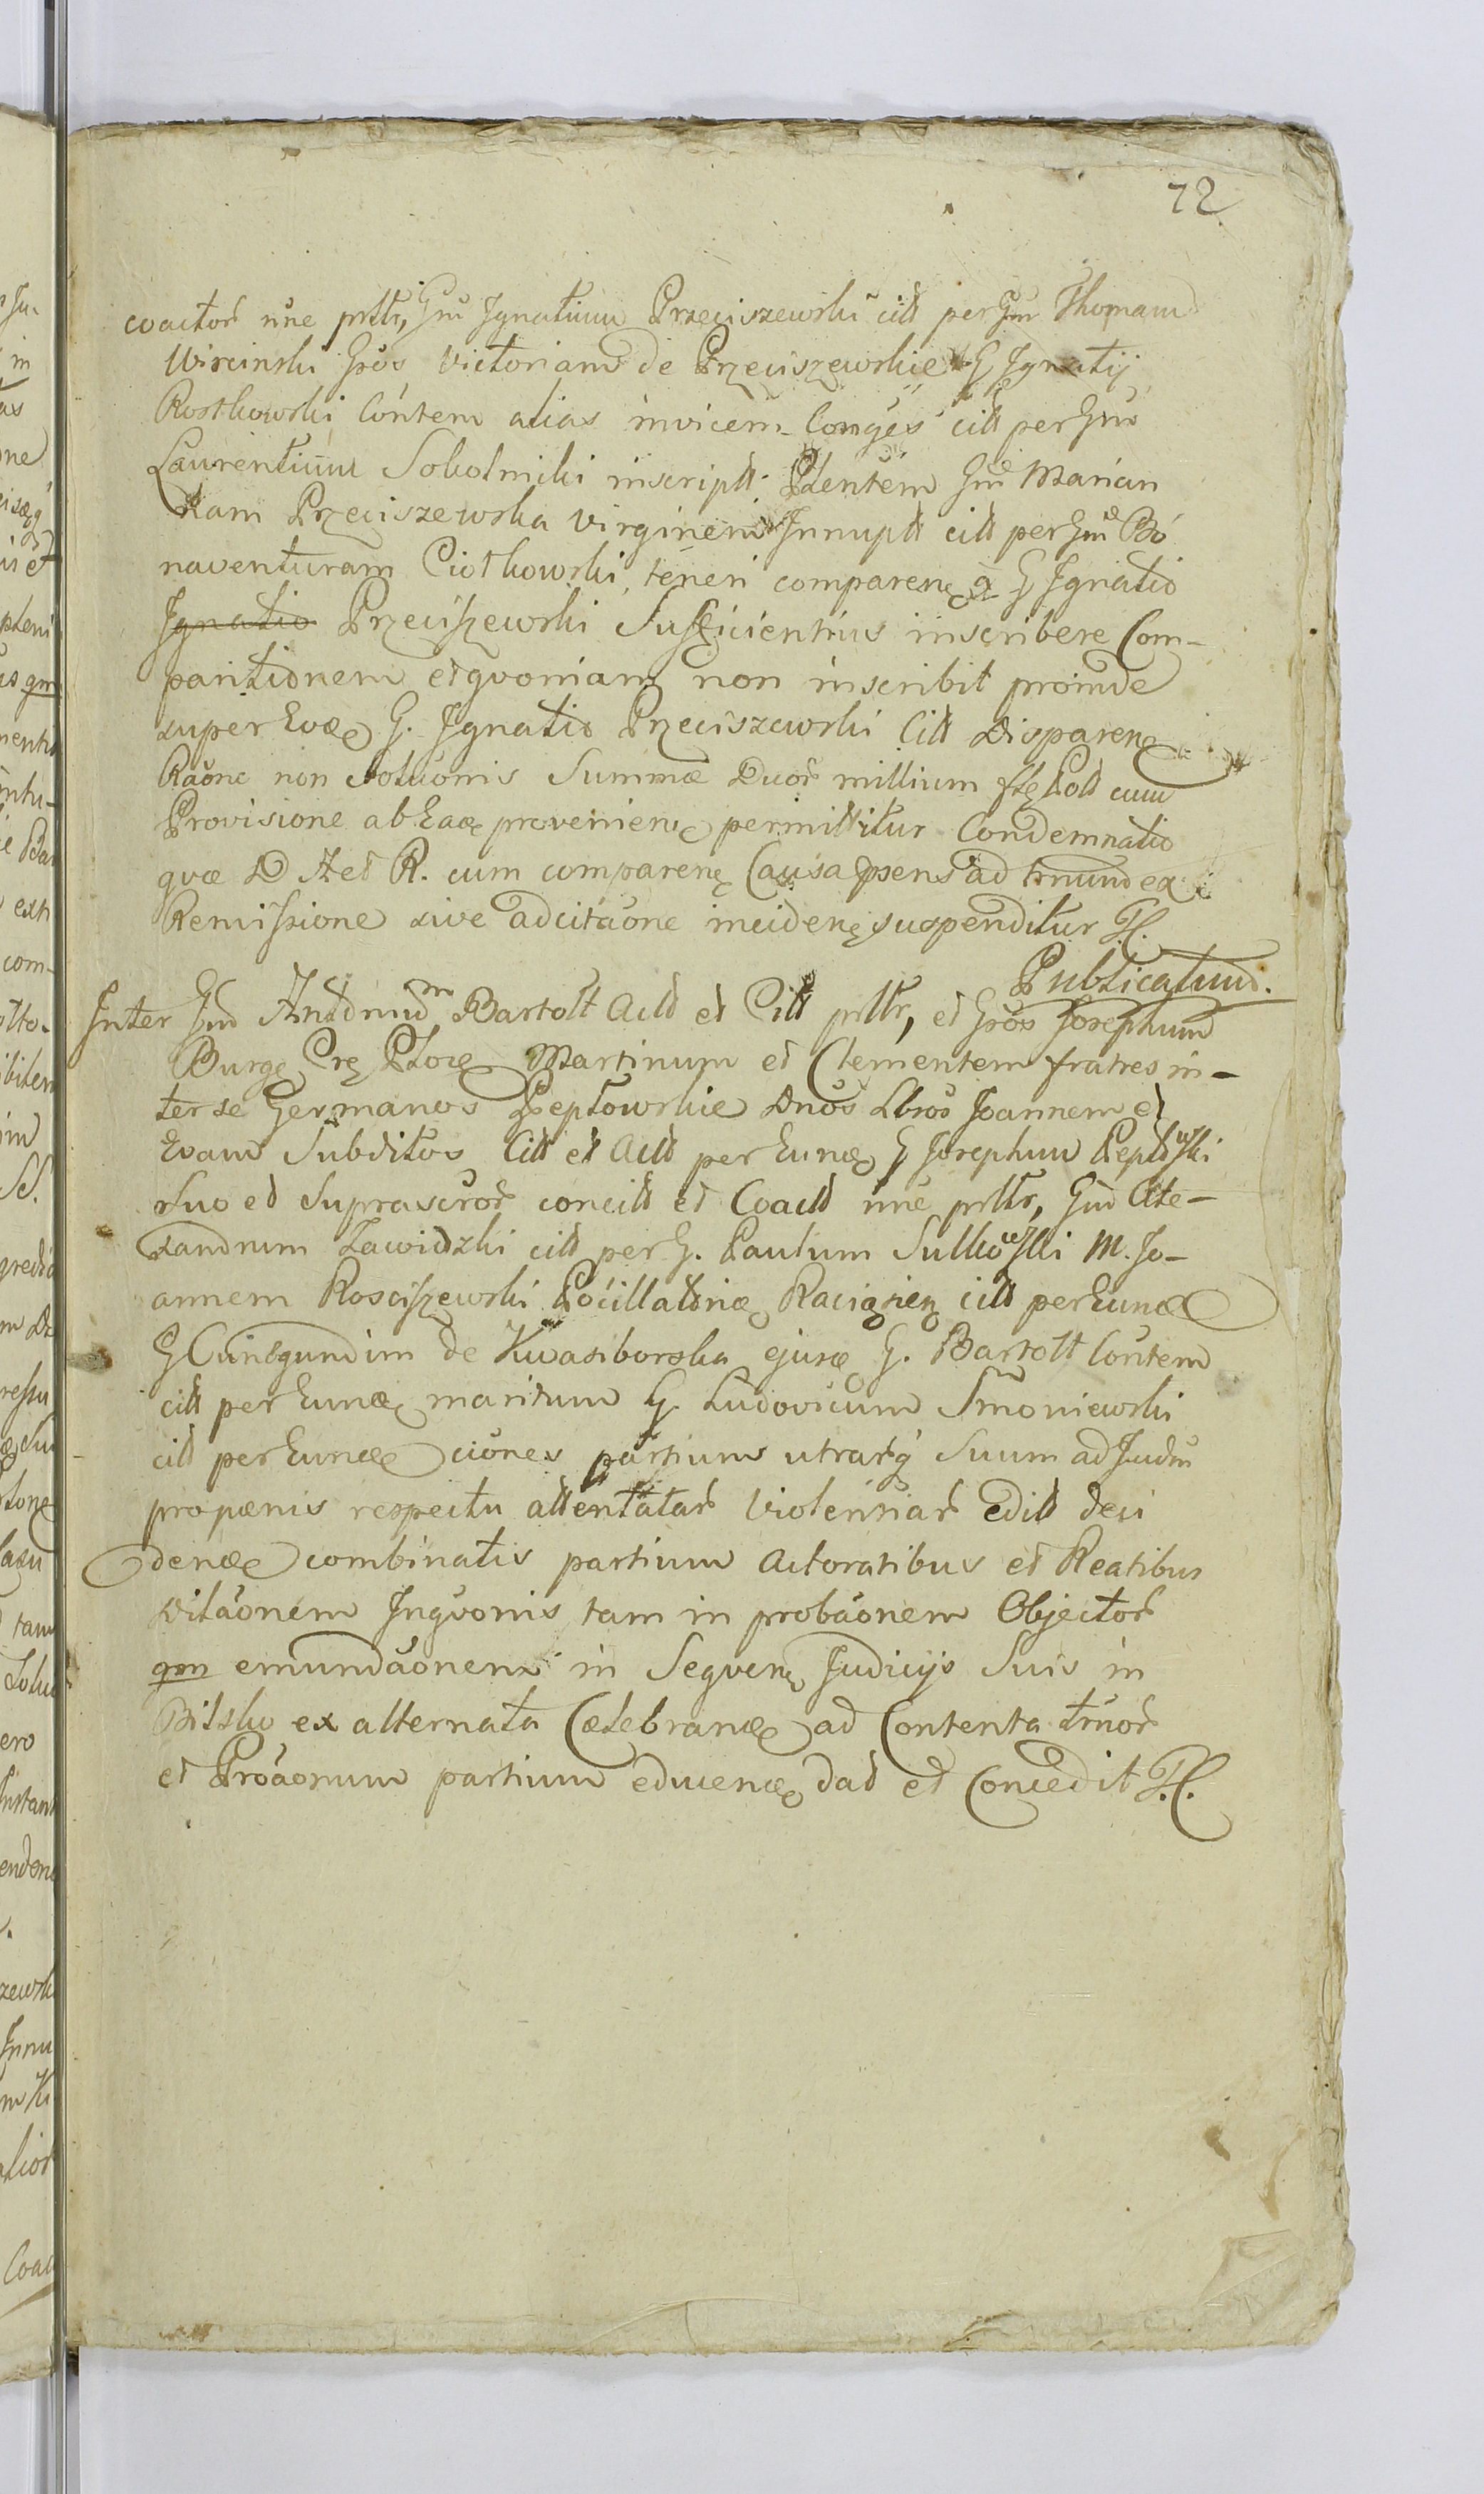 72
coactor nne prttr, Gnu Ignatium Przeciszewski citt per Gnu Thomam
Wircinski Gros Victoriam de Przeciszewskie G Ignatij
Rostkowski Contem alias invicem Conges citt per Gnu
Laurentium Sokolnicki inscript Ptentem Gnu Marian
nam Przeciszewska virginem Innupt citt per Gnu Bo
naventuram Ciotkowski, teneri comparen a G Ignatio
Ignatio Przeciszewski Sufficientius inscribere Com-
paritionem et qvoniam non inscribit proinde
super G. Ignatio Przeciszewski Citt Disparen
Raone non Solutionis Summæ Duor millium Pol cum
Provisione ab Eaq provenien permittitur Condemnatio
qvæ D A et R. cum comparen Causa psens ad trnum ex
Remissione sive adcitaone inciden suspenditur
Publicatum.
Inter Gnu Antonium Bartolt Actt et Citt prttr, et Gros Josephum
Burg Ploc Martinum et Clementem fratres in-
ter se Germanos Peptowskie Dnos Lbros Joannem et
Evam Subditos Citt et Actt per Eunq G Josephum Peptowski
Suo et Suprascror concitt et Coactt nne prttr, Gnu Ale-
xandrum Zawidzki citt per G. Paulum Sulkowski M. Jo-
annem Rosciszewski Pocillatoriæ Raciązien citt per Eunq
G Cunegundim de Kwasiborska ejusq G. Bartolt Contem
citt per Eunq maritum G. Ludovicum Smoniewski
citt per Eunq ciones partium utrarq Suum ad Judm
propænis respectu attentatar Violentiar editt deci
denq combinatis partium Actoratibus et Reatibus
Ditaonem Inqvonis tam in probaonem Objector
qm emundaonem in Seqven Judicijs Suis in
Bilsko ex alternata Cælebranq ad Contenta trnor
et Proaonum partium educenq dat et Concedit